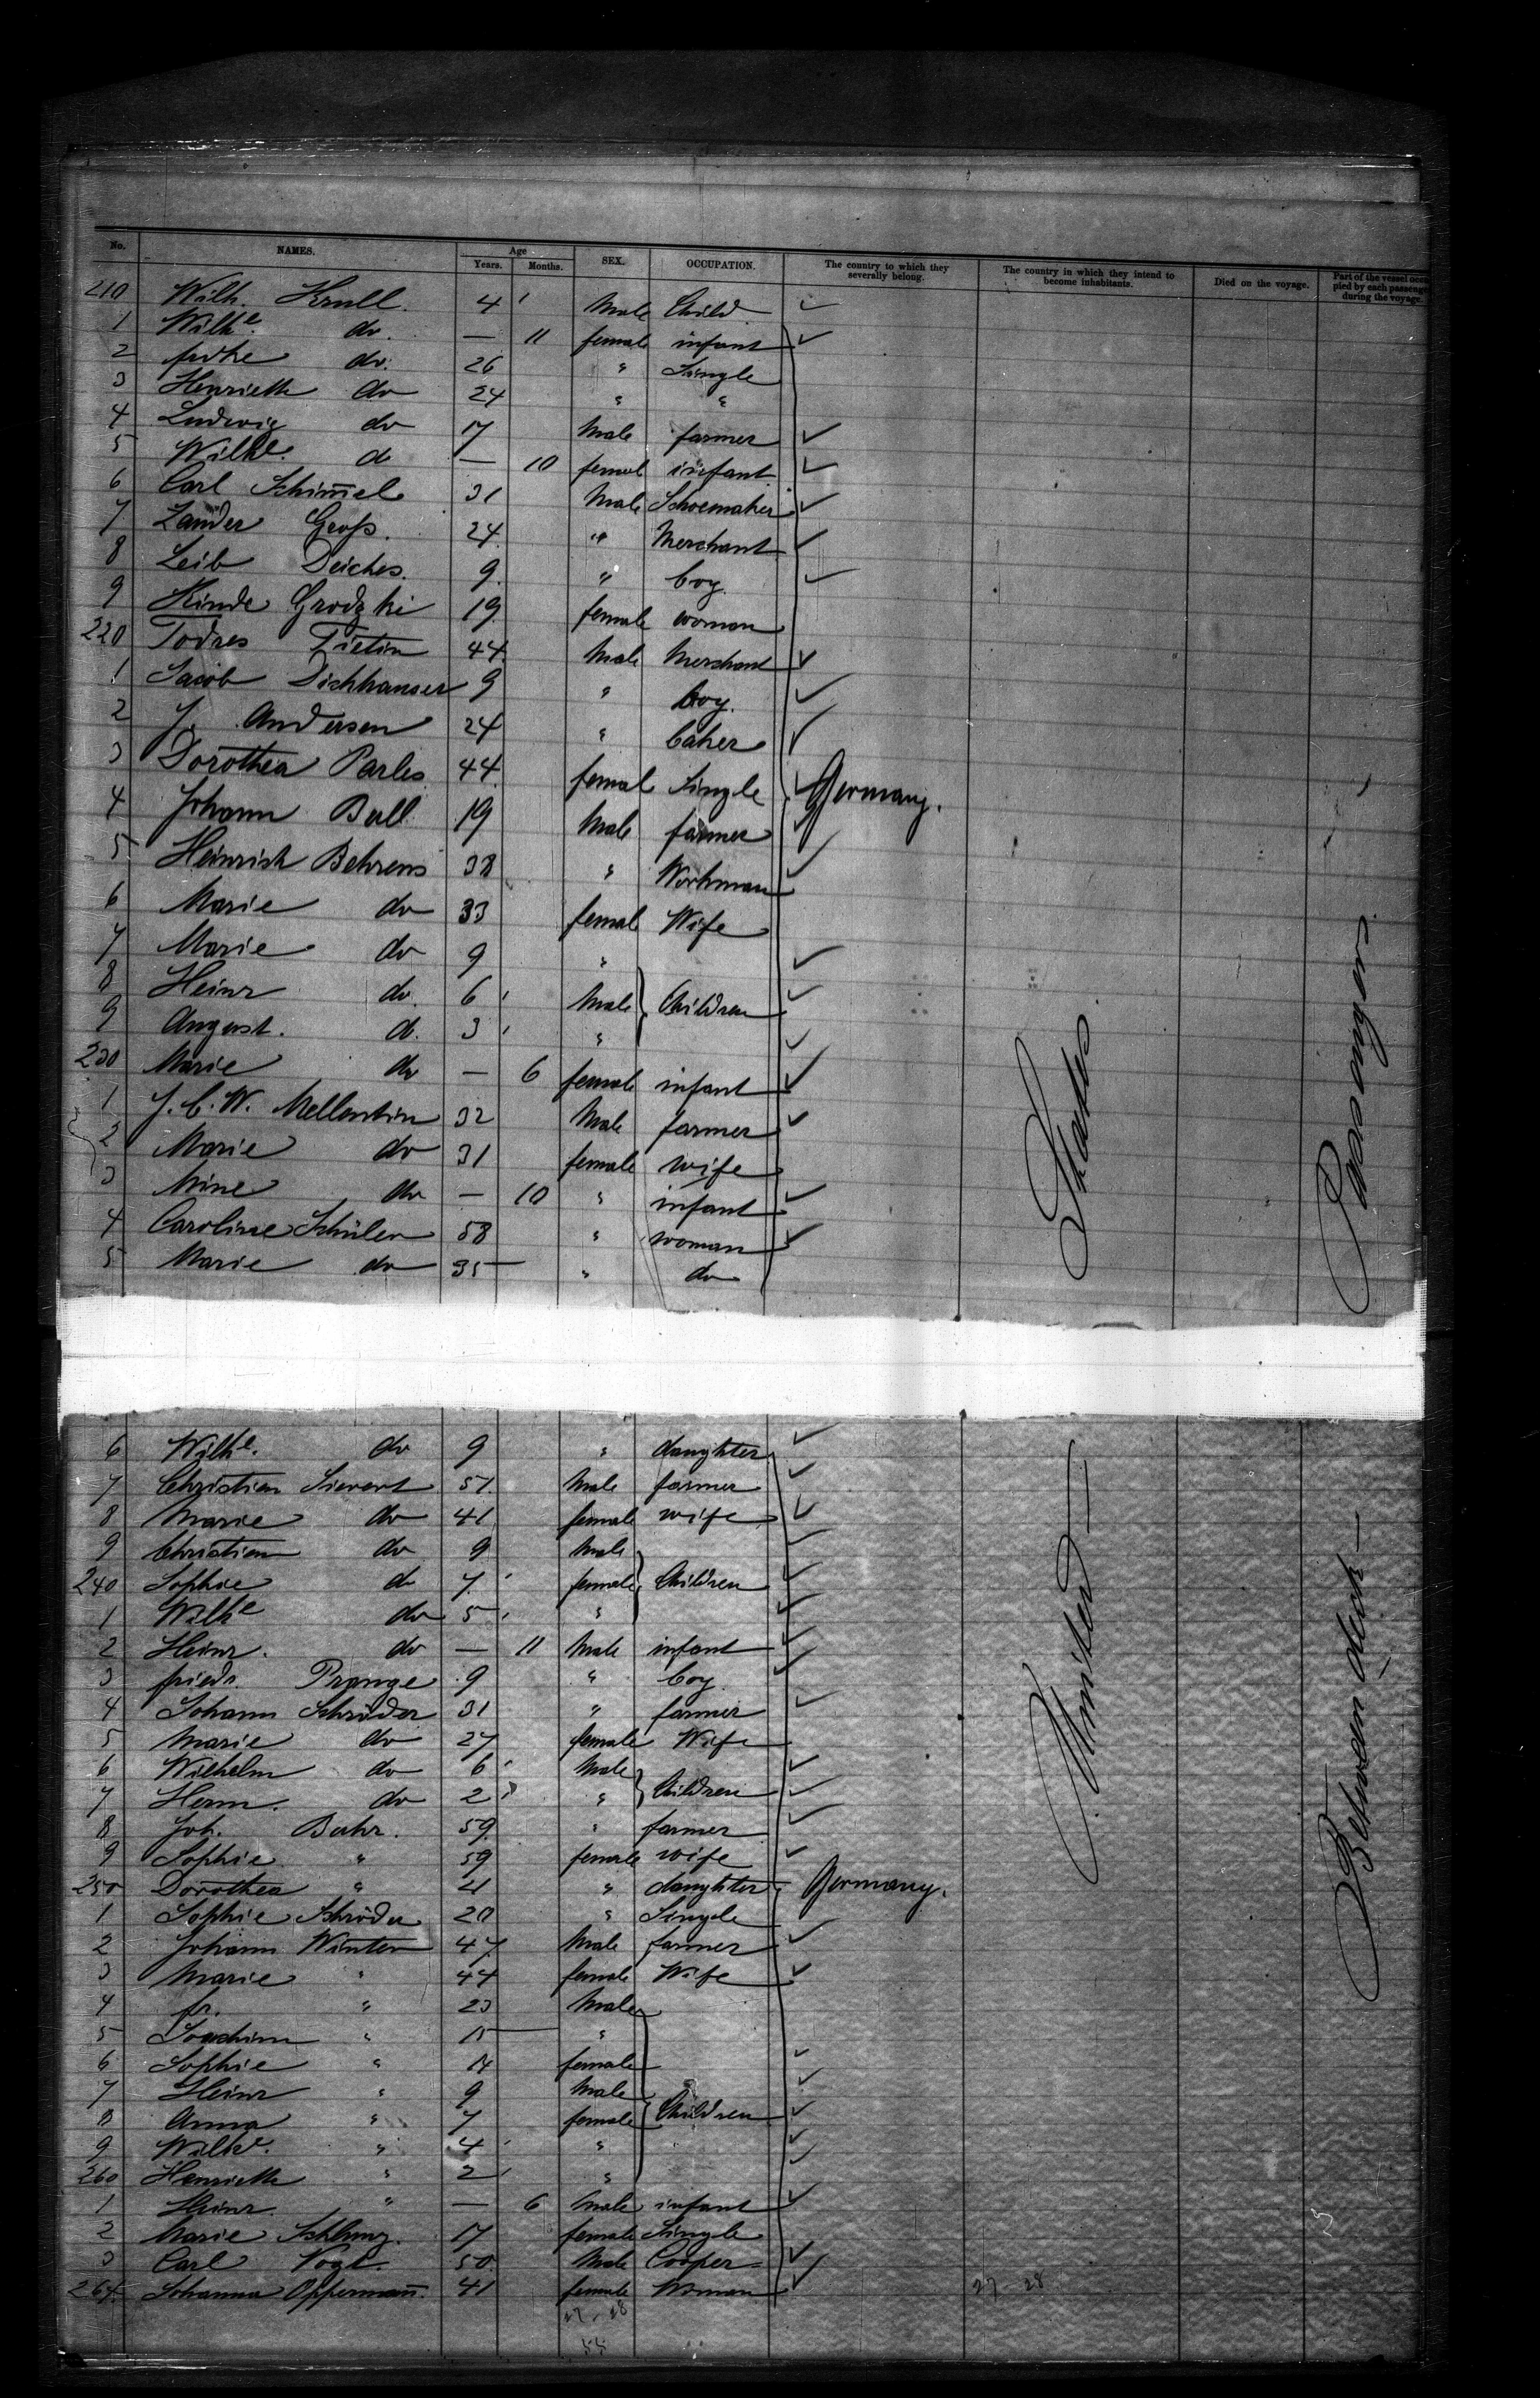 No. NAMES. Age Years. Months. SEX. OCCUPATION. The country to which they severally belong. The country in which they intend to become inhabitants. Died on the voyage. Part of the vessel occupied by each passenger during the voyage.
210 Wilh. Krull. 4 Male Child
1 Wilhe. do. — 11 female infant
2 fredke do. 26 " Single
3 Henriette do 24 " "
4 Ludwig do 17 Male farmer
5 Wilhe. do — 10 femal infant
6 Carl Schim̄el 31 Male Schoemaker
7 Zander Groß. 24. " Merchant
8 Leib Deiches. 9. " boy.
9 Hinde Grodzki 19 female woman
220 Todres Fietin 44. Male Merchant
1 Jacob Dichhauser 9 " boy.
2 J. Andersen 24 " baker
3 Dorothea Parls 44. female Single Germany.
4 Johann Bull 19 Male farmer
5 Heinrich Behrens 38 " Workman
6 Marie do 33 femal Wife
7 Marie do 9 "
8 Heinr do. 6 Male Children
9 August. d. 3 "
230 Marie do — 6 female infant
1 J. C. W. Mellentin 32 Male farmer
2 Marie do 31 female wife
3 Mine do — 10 " infant
4 Caroline Schüler 58 " woman
5 Marie do 35 " do
6 Wilhe. do 9 " daughter
7 Christian Sievert 51. Male farmer
8 Marie do 41 female wife
9 Christian do 9 Male
240 Sophie do 7 female Children
1 Wilhe do 5 "
2 Heinr. do — 11 Male infant
3 friedr. Prange 9 " boy.
4 Johann Schröder 31 " farmer
5 Marie do 27 female Wife
6 Wilhelm do 6 Male
7 Herm. do 2 " Children
8 Joh. Buhr. 59. " farmer
9 Sophie " 59 female wife
250 Dorothea " 21 " daughter Germany.
1 Sophie Schröder 20 " Single
2 Johann Winter 47 Male farmer
3 Marie " 44 female Wife
4 fr. " 23 Male
5 Joachim " 15 "
6 Sophie " 14 female
7 Heinr " 9 Male
8 Anna " 7 female Children
9 Wilhe. " 4 "
260 Henriette " 2 "
1 Heinr. " — 6 Male infant
2 Marie 17 female Single
3 Carl Vogt. 50. Male Cooper
264. Johanna Opperman̄. 41 female Woman
27 - 28
27 - 28
55
United States
Between deck Passengers